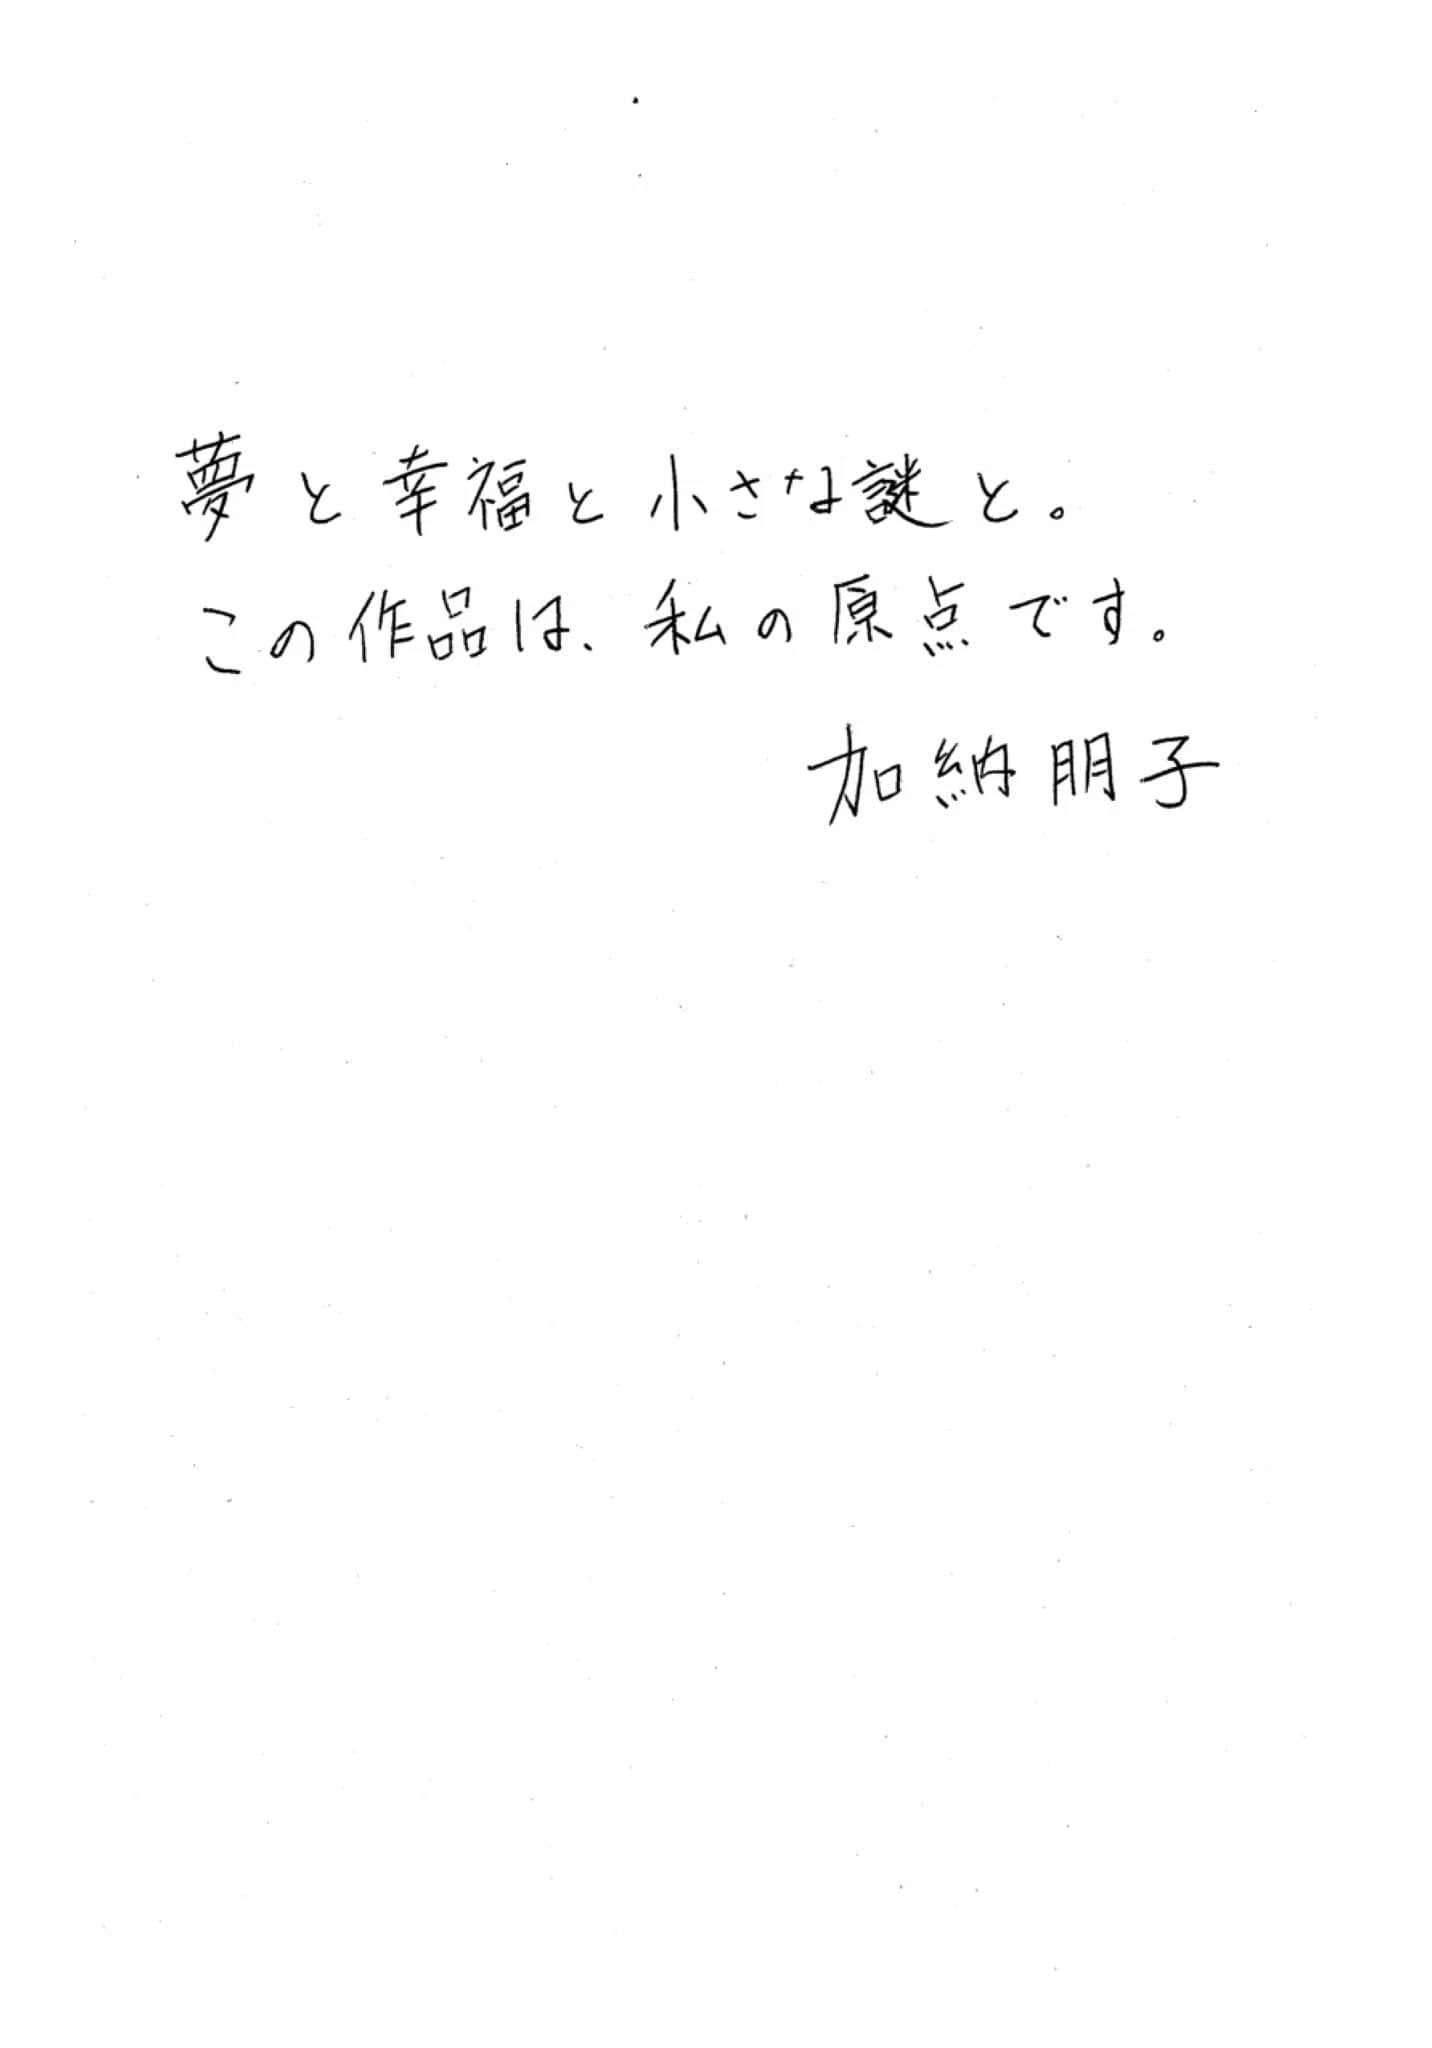 夢と幸福と小さな謎と。
この作品は、私の原点です。
加納朋子